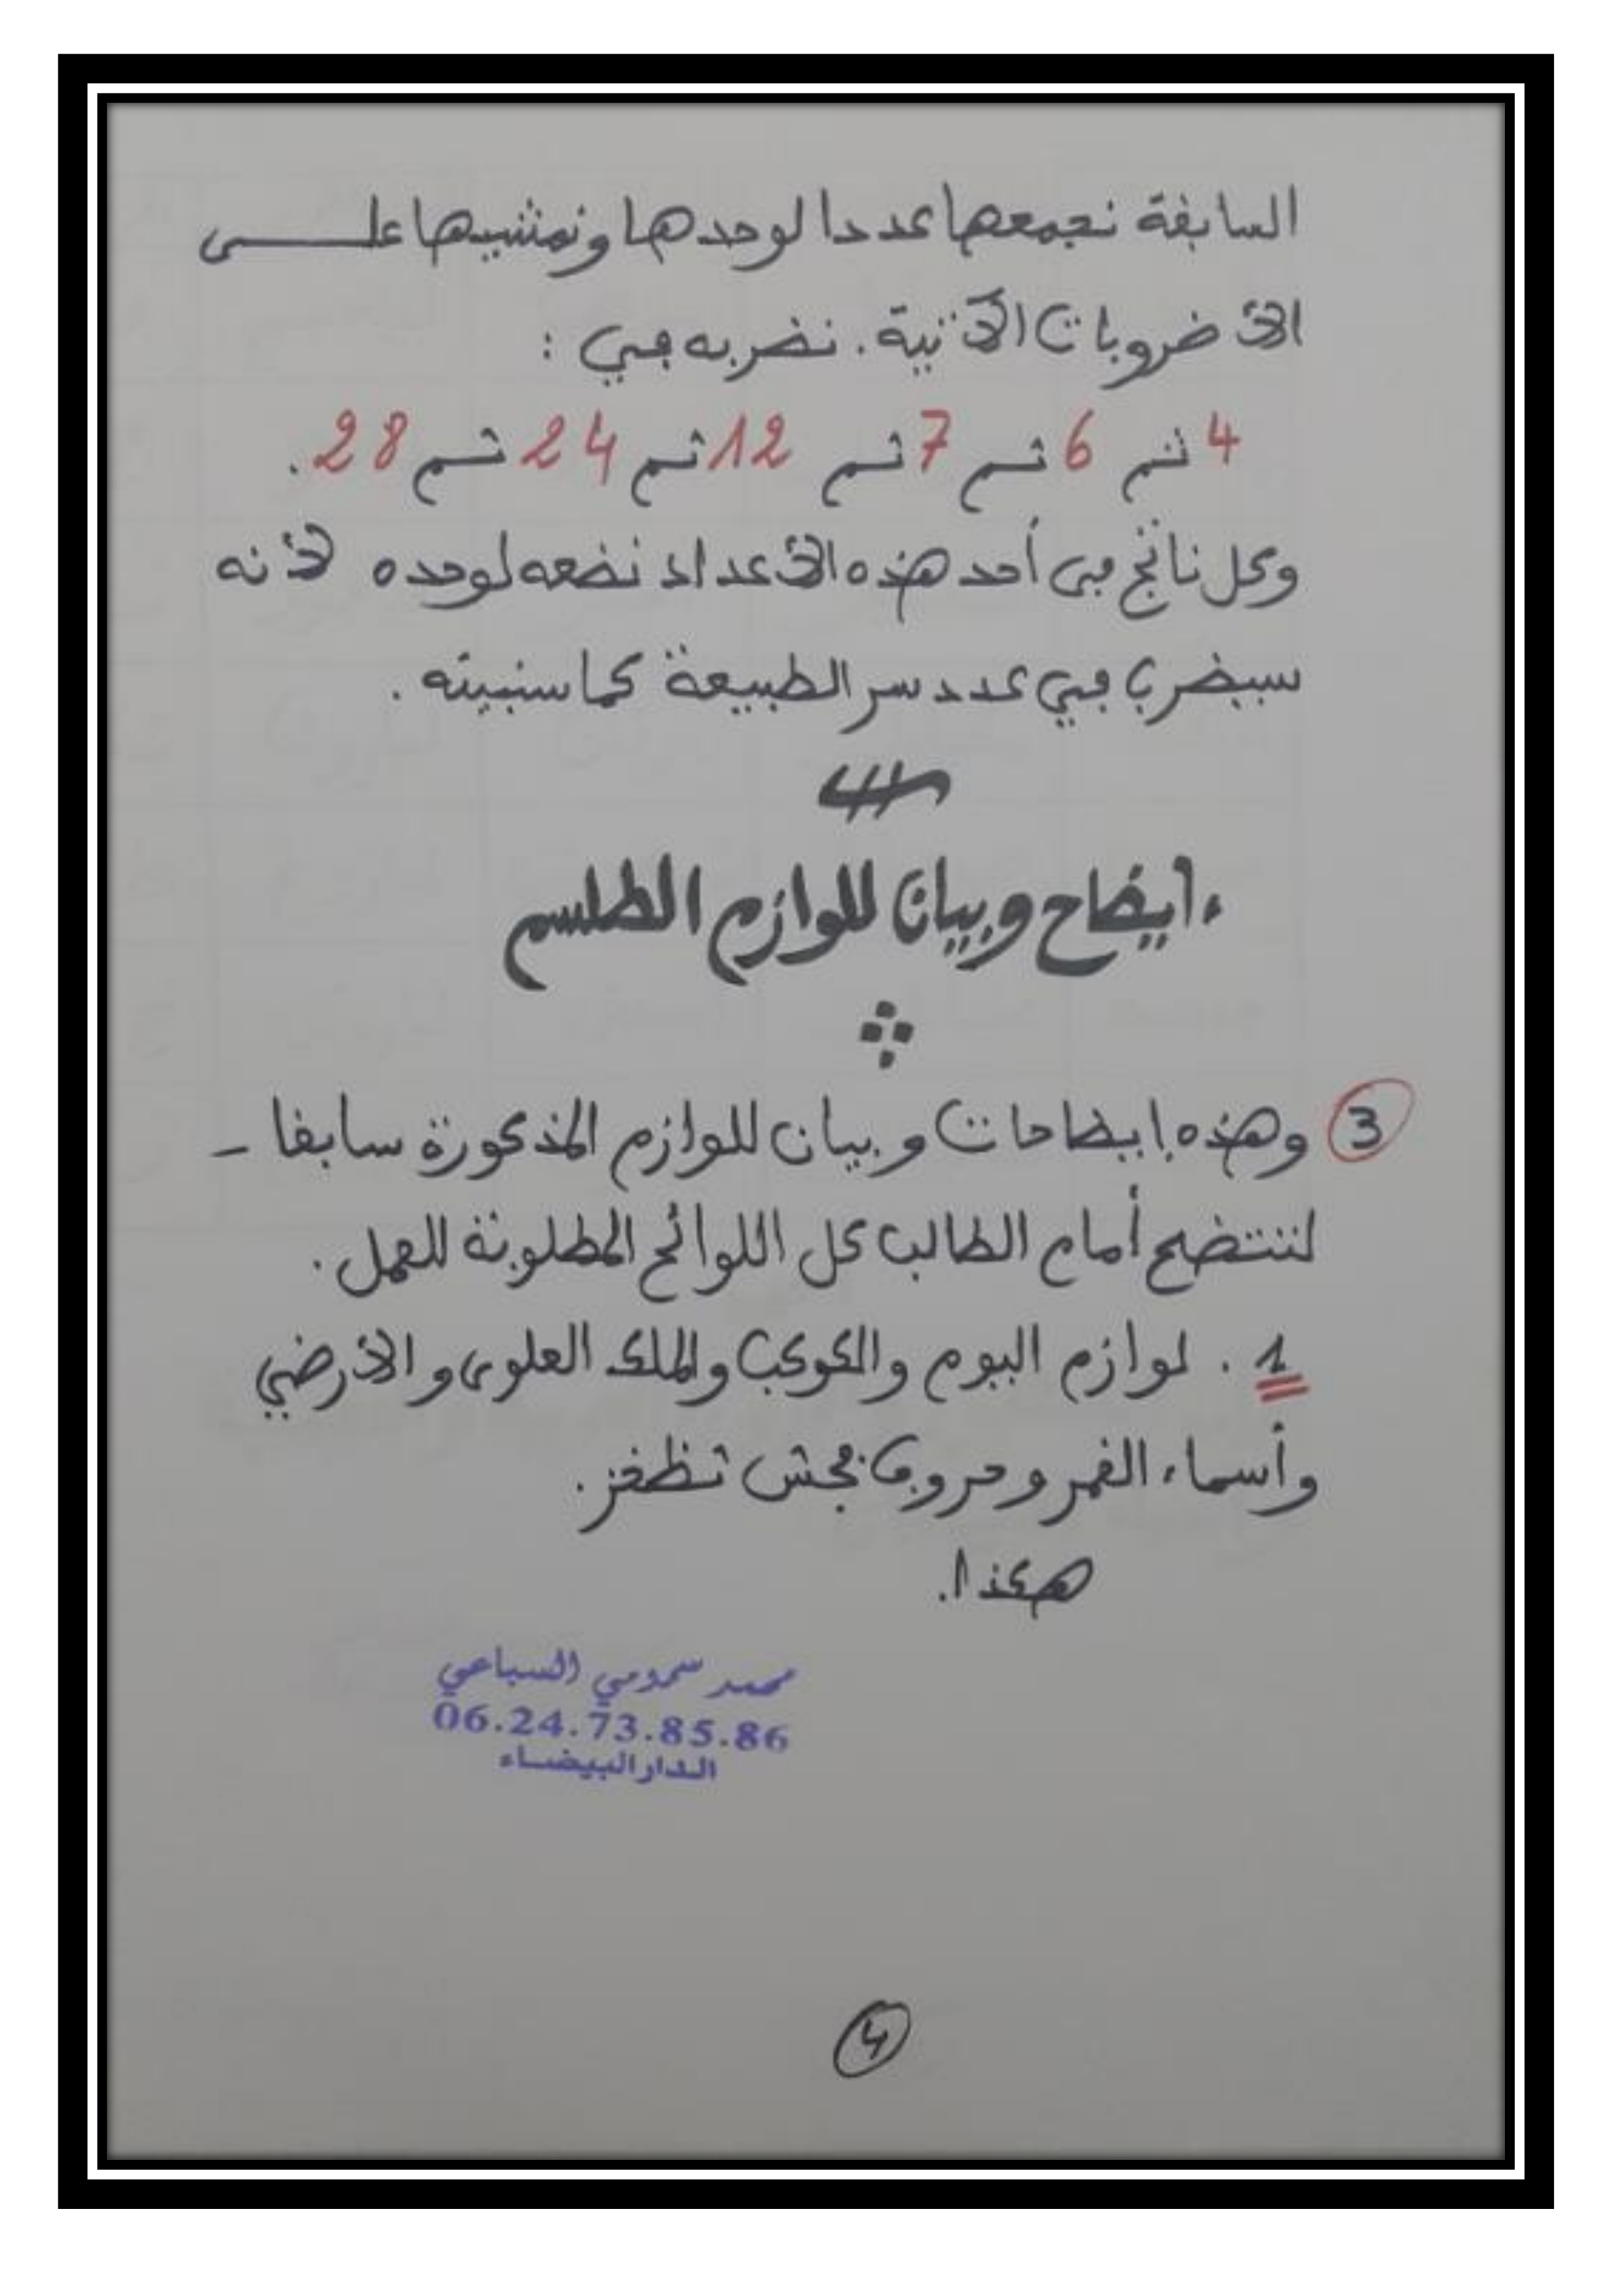 السابقة نجمعها عددا لوحدها ونمشيها على
الأضروبات الآتية. نضربه في :
4 ثم 6 ثم 7 ثم 12 ثم 24 ثم 28.
وكل ناتج من أحد هذه الأعداد نضعه لوحده لأنه
سيضرب في عدد سر الطبيعة كما سنبينه.
إيضاح وبيان للوازم الطلسم
3 وهذه إيضاحات وبيان للوازم المذكورة سابقا -
لتتضح أمام الطالب كل اللوائح المطلوبة للعمل.
1. لوازم اليوم والكوكب والملك العلوى والأرضي
وأسماء القمر وحروف فجش تظخز.
هكذا.
محمد سمومي السباعي
06.24.73.85.86
الدار البيضاء
4